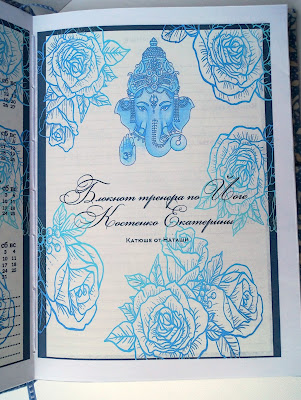 Блокнот тренера по Йоге
Костенко Екатерины
Катюше от Наташи